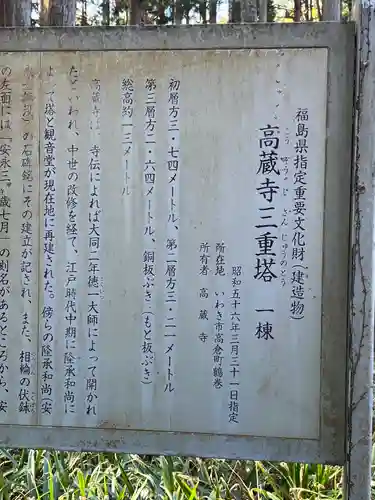 福島県指定重要文化財（建造物）
こうぞうじさんじゅうのとう
高蔵寺三重塔 一棟
昭和五十六年三月三十一日指定
所在地 いわき市高倉町鶴巻
所有者 高蔵寺
初層方三・七四メートル、第二層方三・二一メートル
第三層方二・六四メートル、銅板ぶき（もと板ぶき）
総高約一三メートル
高蔵寺は、寺伝によれば大同二年徳一大師によって開かれ
たといわれ、中世の改修を経て、江戸時代中期に隆承和尚に
よって塔と観音堂が現在地に再建された。傍らの隆承和尚（安
の石碑銘にその建立が記され、また、相輪の伏鉢
の左面には「安永三 歳七月」の刻名があるところから、安